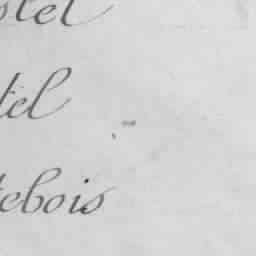 stel
tel
tebois